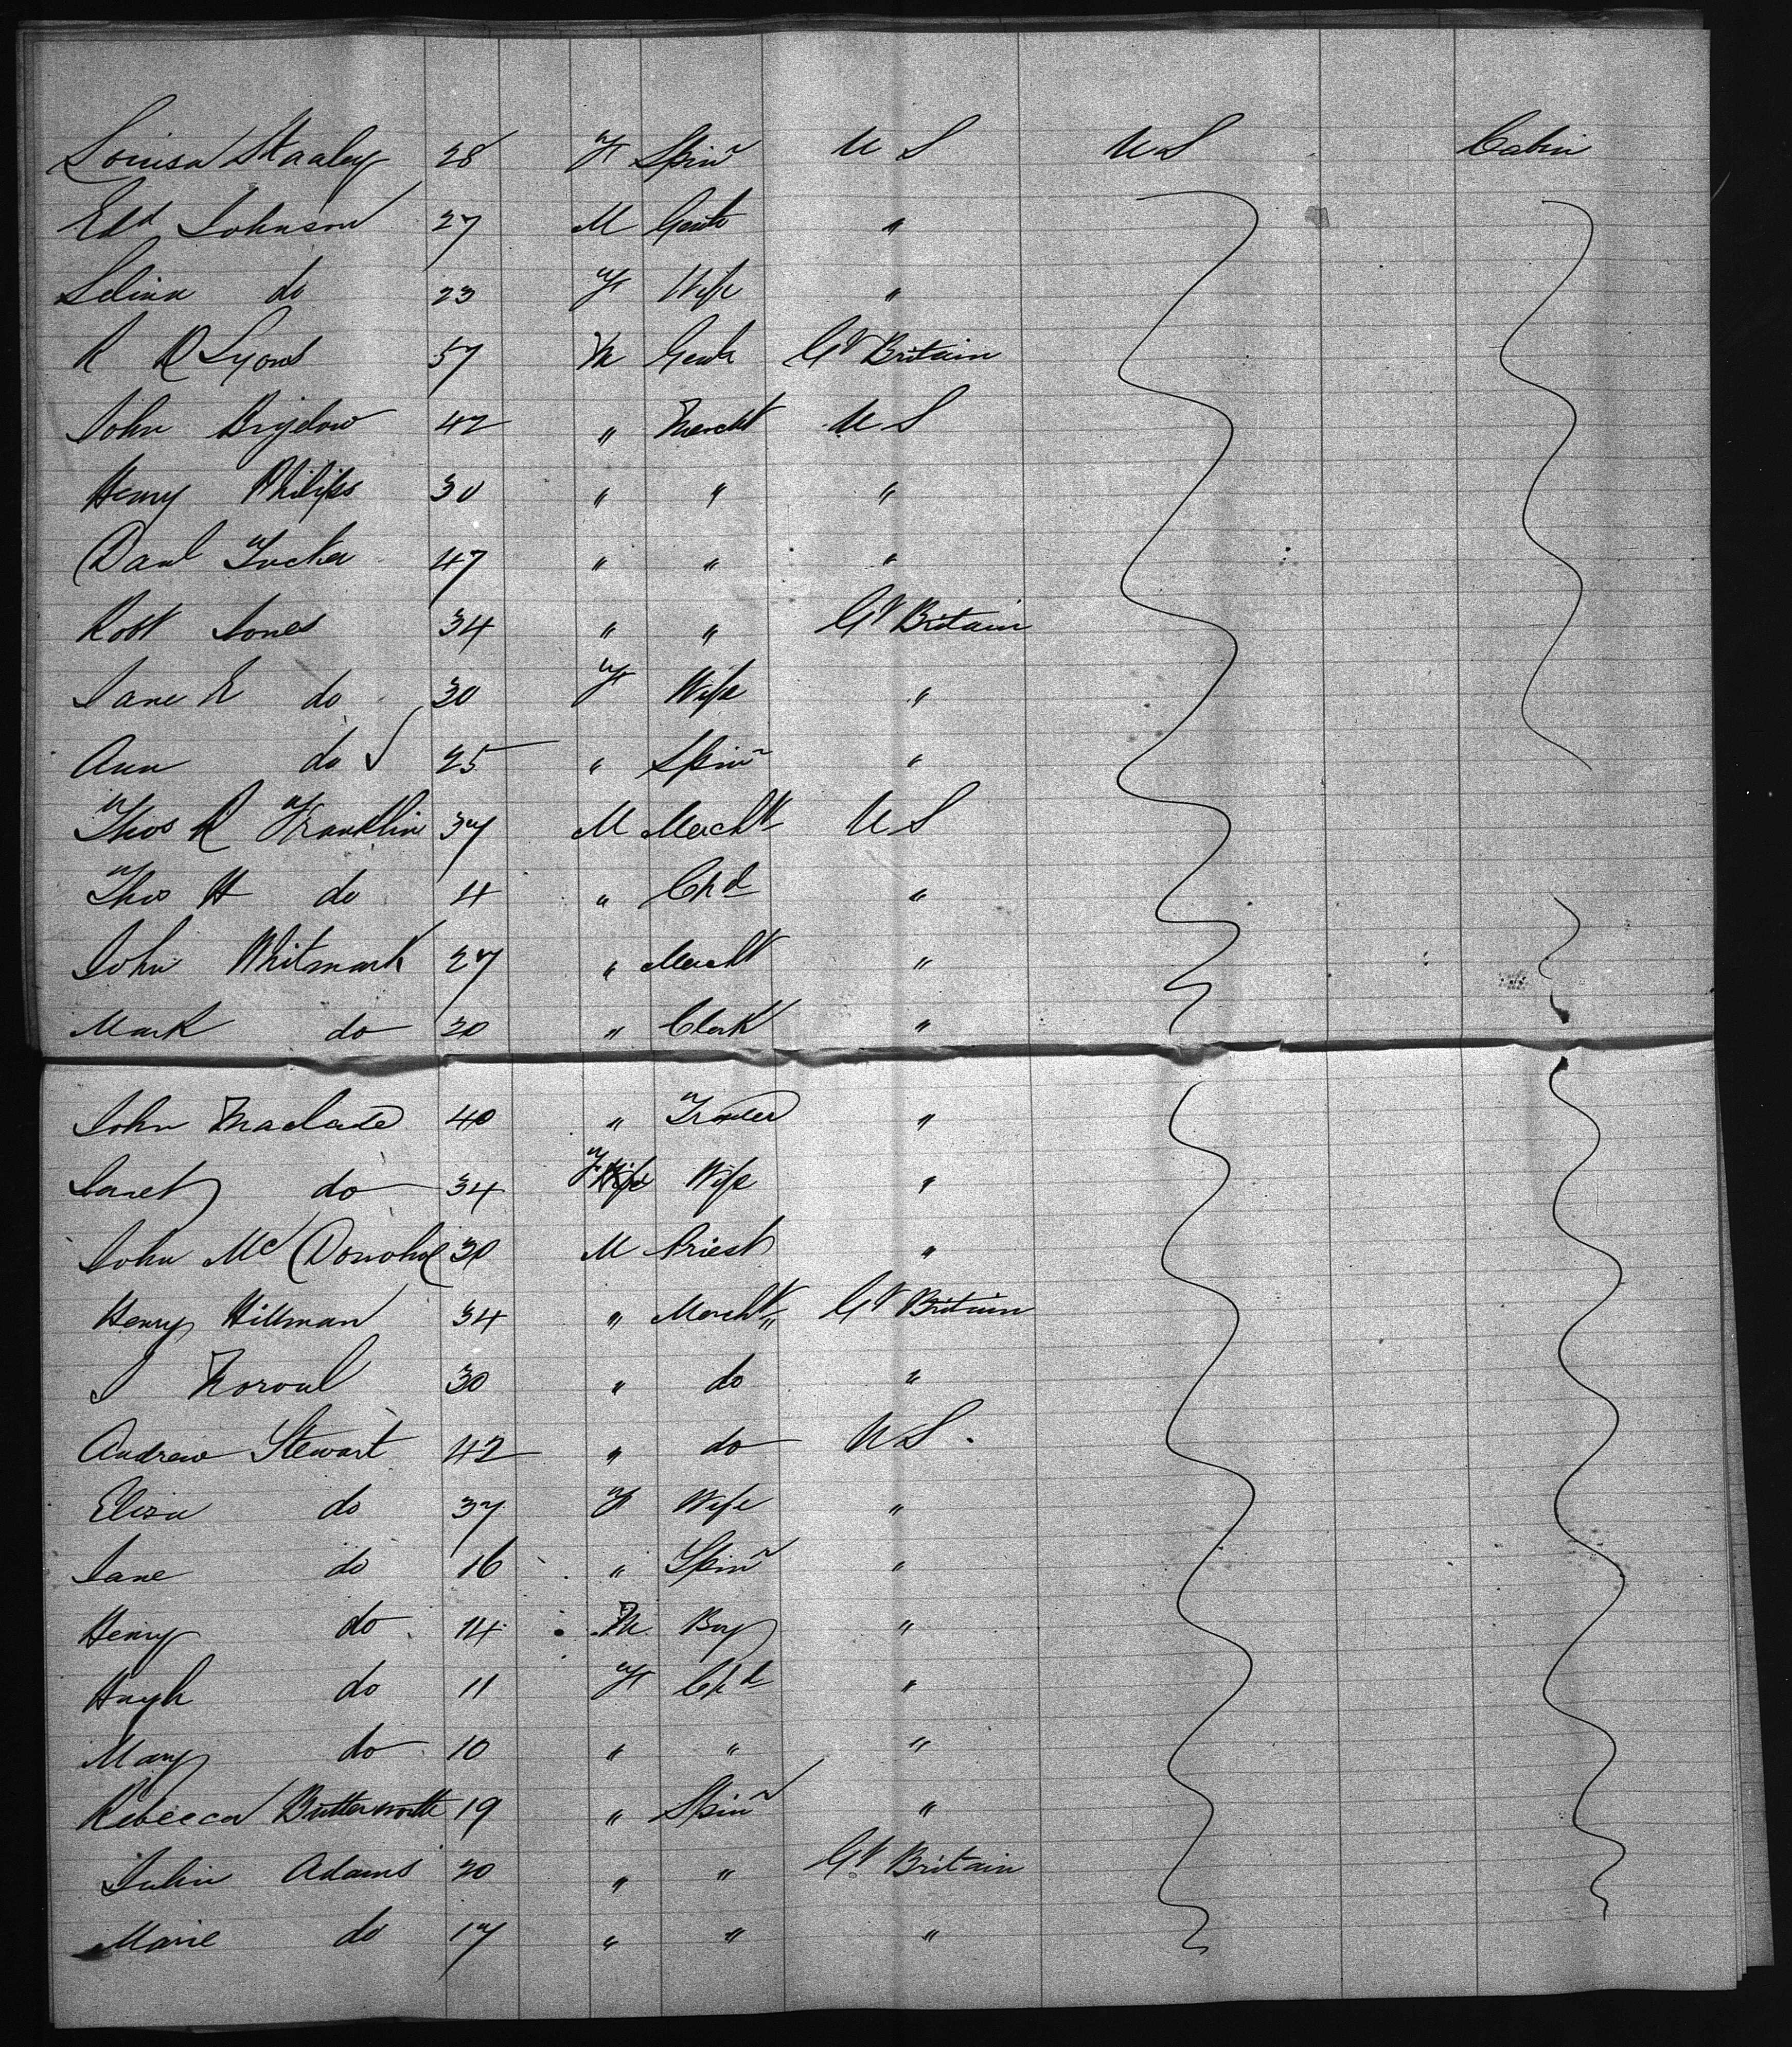 Louisa Staaley 28 F Spinr U S U S Cabin
Edd Johnson 27 M Gent "
Selina do 23 F Wife "
R R Lyons 57 M Gent Gt Britain
John Bigelow 42 " Mercht U S
Henry Philips 30 " " "
Danl Tucker 47 " " "
Robt Jones 34 " " Gt Britain
Jane E do 30 F Wife "
Ann do 25 " Spinr "
Thos R Franklin 37 M Mercht U S
Thos H do 4 " Chd "
John Whitmark 27 " Mercht "
Mark do 20 " Clerk "
John 40 " Trader "
Janet do 34 F Wife "
John Mc Donohoe 30 M Priest "
Henry Hillman 34 " Mercht " Gt Britain
J 30 " do "
Andrew Stewart 42 " do U S
Eliza do 37 F Wife "
Jane do 16 " Spinr "
Henry do 14 M Boy "
Hugh do 11 F Chd "
Mary do 10 " " "
Rebecca Butterworth 19 " Spinr "
Julia Adams 20 " " Gt Britain
Marie do 17 " " "